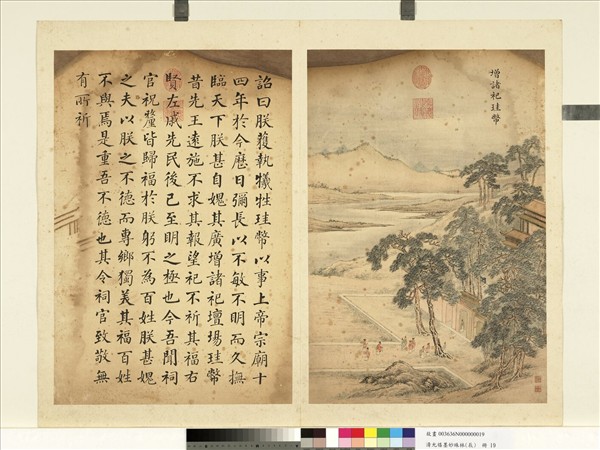 增諸祀珪幣
詔曰朕獲執犧牲珪幣以事上帝宗廟十
四年於今歷日彌長以不敏不明而久撫
臨天下朕甚自媿其廣增諸祀壇場珪幣
昔先王遠施不求其報望祀不祈其福右
賢左戚先民後己至明之極也今吾聞祠
官祝釐皆歸福於朕躬不為百姓朕甚媿
之夫以朕之不德而專鄉獨美其福百姓
不與焉是重吾不德也其令祠官致敬無
有所祈
故畫 003636N000000019
冊 19